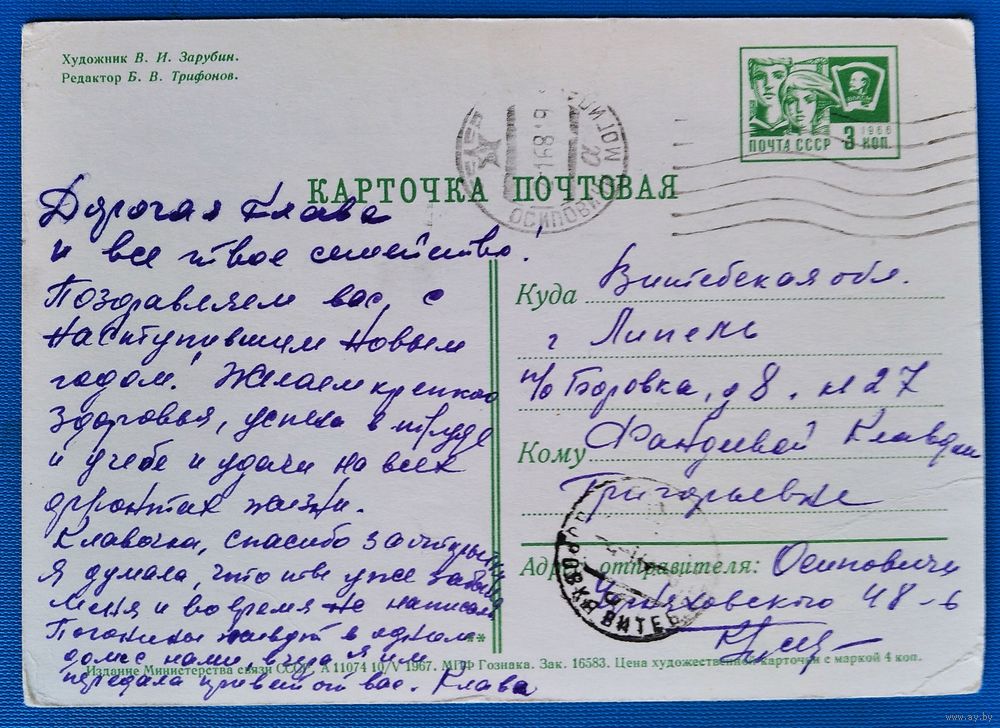 Художник В. И. Зарубин.
Редактор Б. В. Трифонов.
ПОЧТА СССР 3 КОП.
1966
ВЛКСМ
ОСИПОВИЧИ
КАРТОЧКА ПОЧТОВАЯ
Дорогая Клава
и все твое семейство!
Поздравляем вас, с
наступившим Новым
годом! Желаем крепкого
здоровья, успеха в труде
и учебе и удачи на всех
фронтах жизни.
Клавочка, спасибо за открытку
Я думала, что ты уже забыла
меня и во время не написала
живут в одном
доме с нами, вчера я им
передала привет от вас. Клава
Куда Витебская обл.
г Лепель
п/о Боровка, д 8. кв 27
Кому Клавдии
Григорьевне
Адрес отправителя: Осиповичи
Черняховского 48-6
БОРОВКА ВИТЕБ
Издание Министерства связи СССР. А 11074 10/V 1967. МПФ Гознака. Зак. 16583. Цена художественной карточки с маркой 4 коп.
www.ay.by